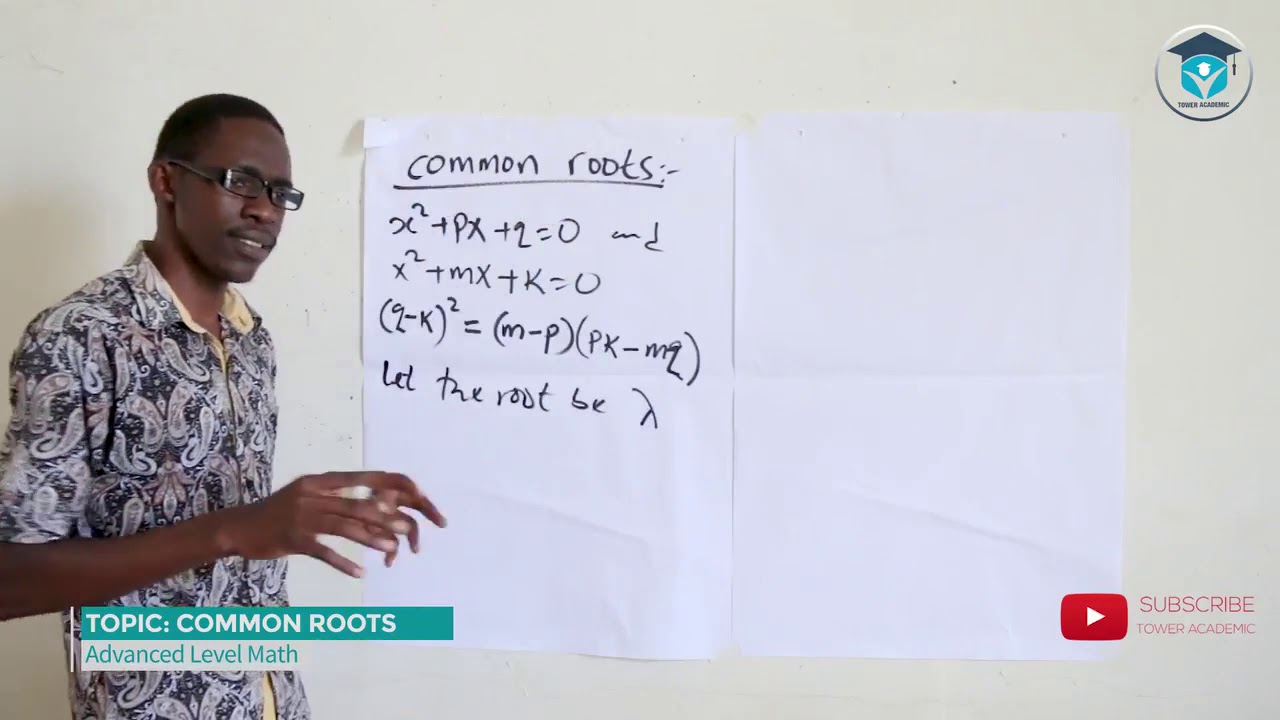 common roots:-
x²+px+q=0 and
x²+mx+k=0
(q-k)²=(m-p)(pk-mq)
Let the root be λ
TOPIC: COMMON ROOTS
Advanced Level Math
TOWER ACADEMIC
SUBSCRIBE
TOWER ACADEMIC